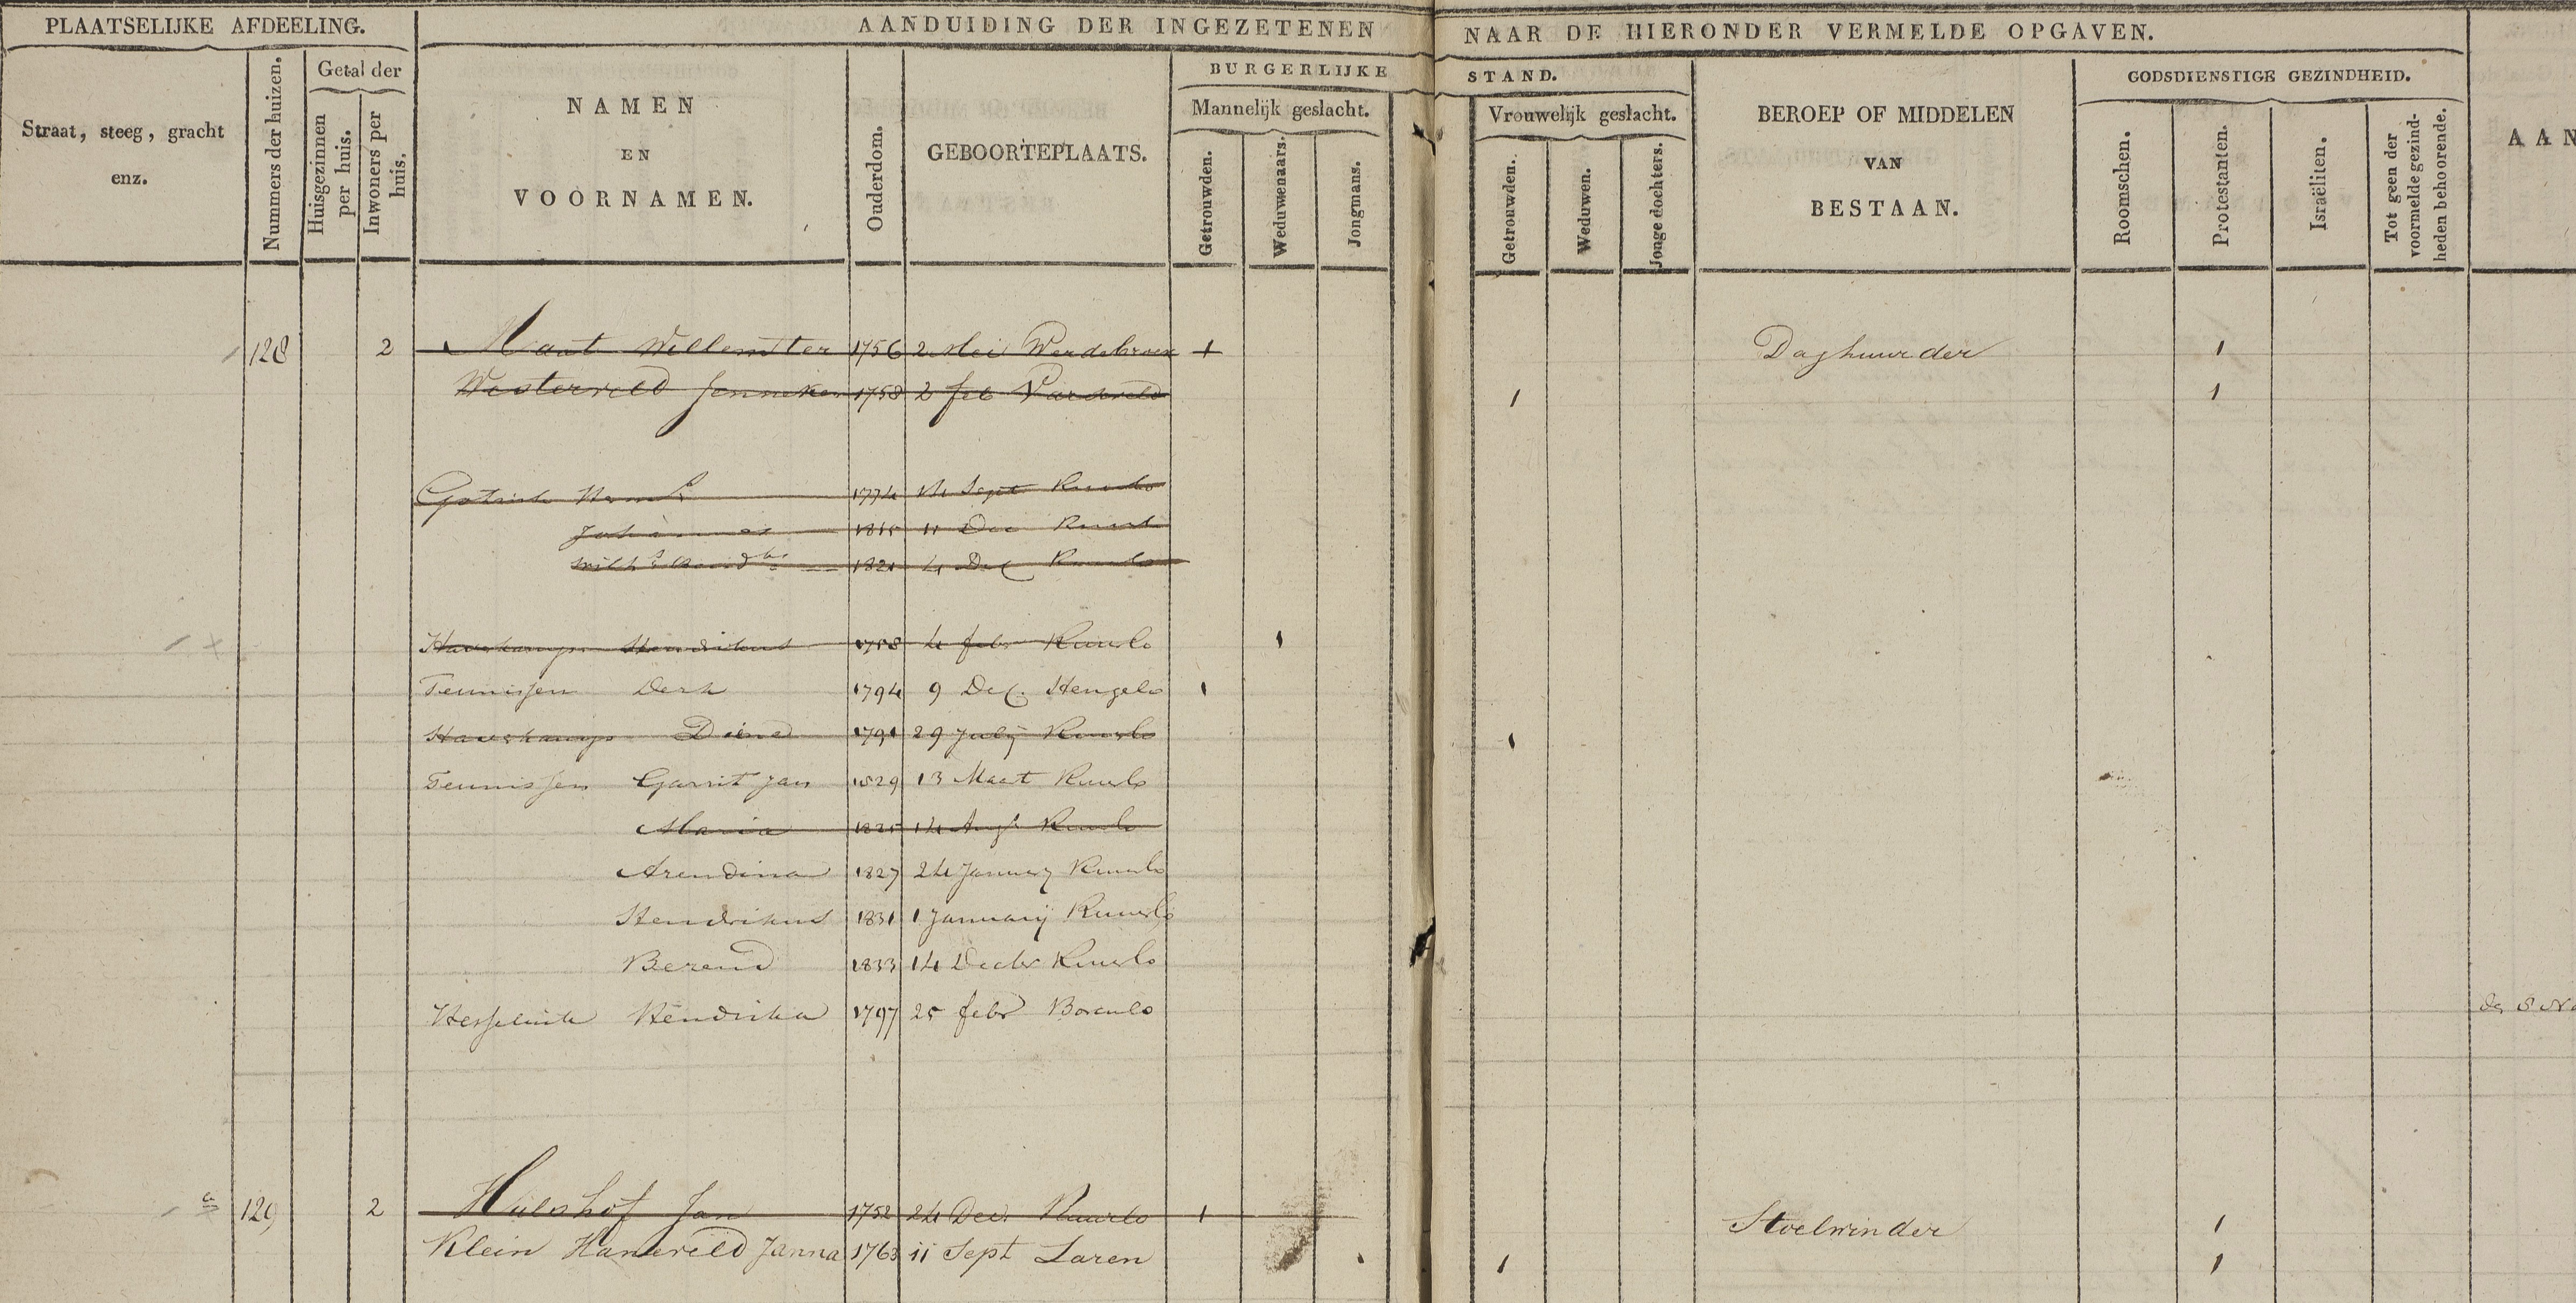 PLAATSELIJKE AFDEELING.
AANDUIDING DER INGEZETENEN NAAR DE HIERONDER VERMELDE OPGAVEN.
Straat, steeg, gracht
enz.
Nummers der huizen.
Getal der
Huisgezinnen per huis.
Inwoners per huis.
NAMEN
EN
VOORNAMEN.
Ouderdom.
GEBOORTEPLAATS.
BURGERLIJKE STAND.
Mannelijk geslacht.
Getrouwden.
Weduwenaars.
Jongmans.
Vrouwelijk geslacht.
Getrouwden.
Weduwen.
Jonge dochters.
BEROEP OF MIDDELEN
VAN
BESTAAN.
GODSDIENSTIGE GEZINDHEID.
Roomschen.
Protestanten.
Israëliten.
Tot geen der voormelde gezindheden behoorende.
AAN
128 2 Maat Willem ter 1756 2 Mei 1 Daghuurder 1
Westerveld Jenneken 1758 2 feb Varseveld 1 1
1774 14 Sept Ruurlo
Johannes 1815 11 Dec Ruurlo
1821 4 Dec Ruurlo
Haverkamp Hendrikus 1758 4 febr Ruurlo 1
Teunissen Derk 1794 9 Dec. Hengelo 1
Haverkamp Diena 1791 29 July Ruurlo 1
Teunissen Garrit Jan 1829 13 Maart Ruurlo
Maria 1825 14 Augs Ruurlo
Arendina 1827 24 January Ruurlo
Hendrikus 1831 1 Januarij Ruurlo
Berend 1833 14 Decbr Ruurlo
Hesselink Hendrika 1797 25 febr Borculo
a 129 2 Hulshof Jan 1752 24 Dec. Ruurlo 1 Stoelwinder 1
Klein Haneveld Janna 1763 11 Sept Laren 1 1